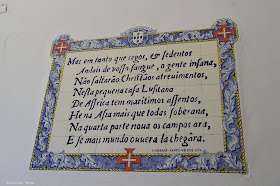 Mas em tanto que cegos, & ſedentos
Andais de voſſo ſangue, o gente inſana,
Não faltarão Chriſtãos atreuimentos,
Neſta pequena caſa Luſitana
De Affrica tem maritimos aſſentos,
He na Aſia mais que todas ſoberana,
Na quarta parte noua os campos ara,
E ſe mais mundo ouuera la chegâra.
LUSIADAS-CANTO VII